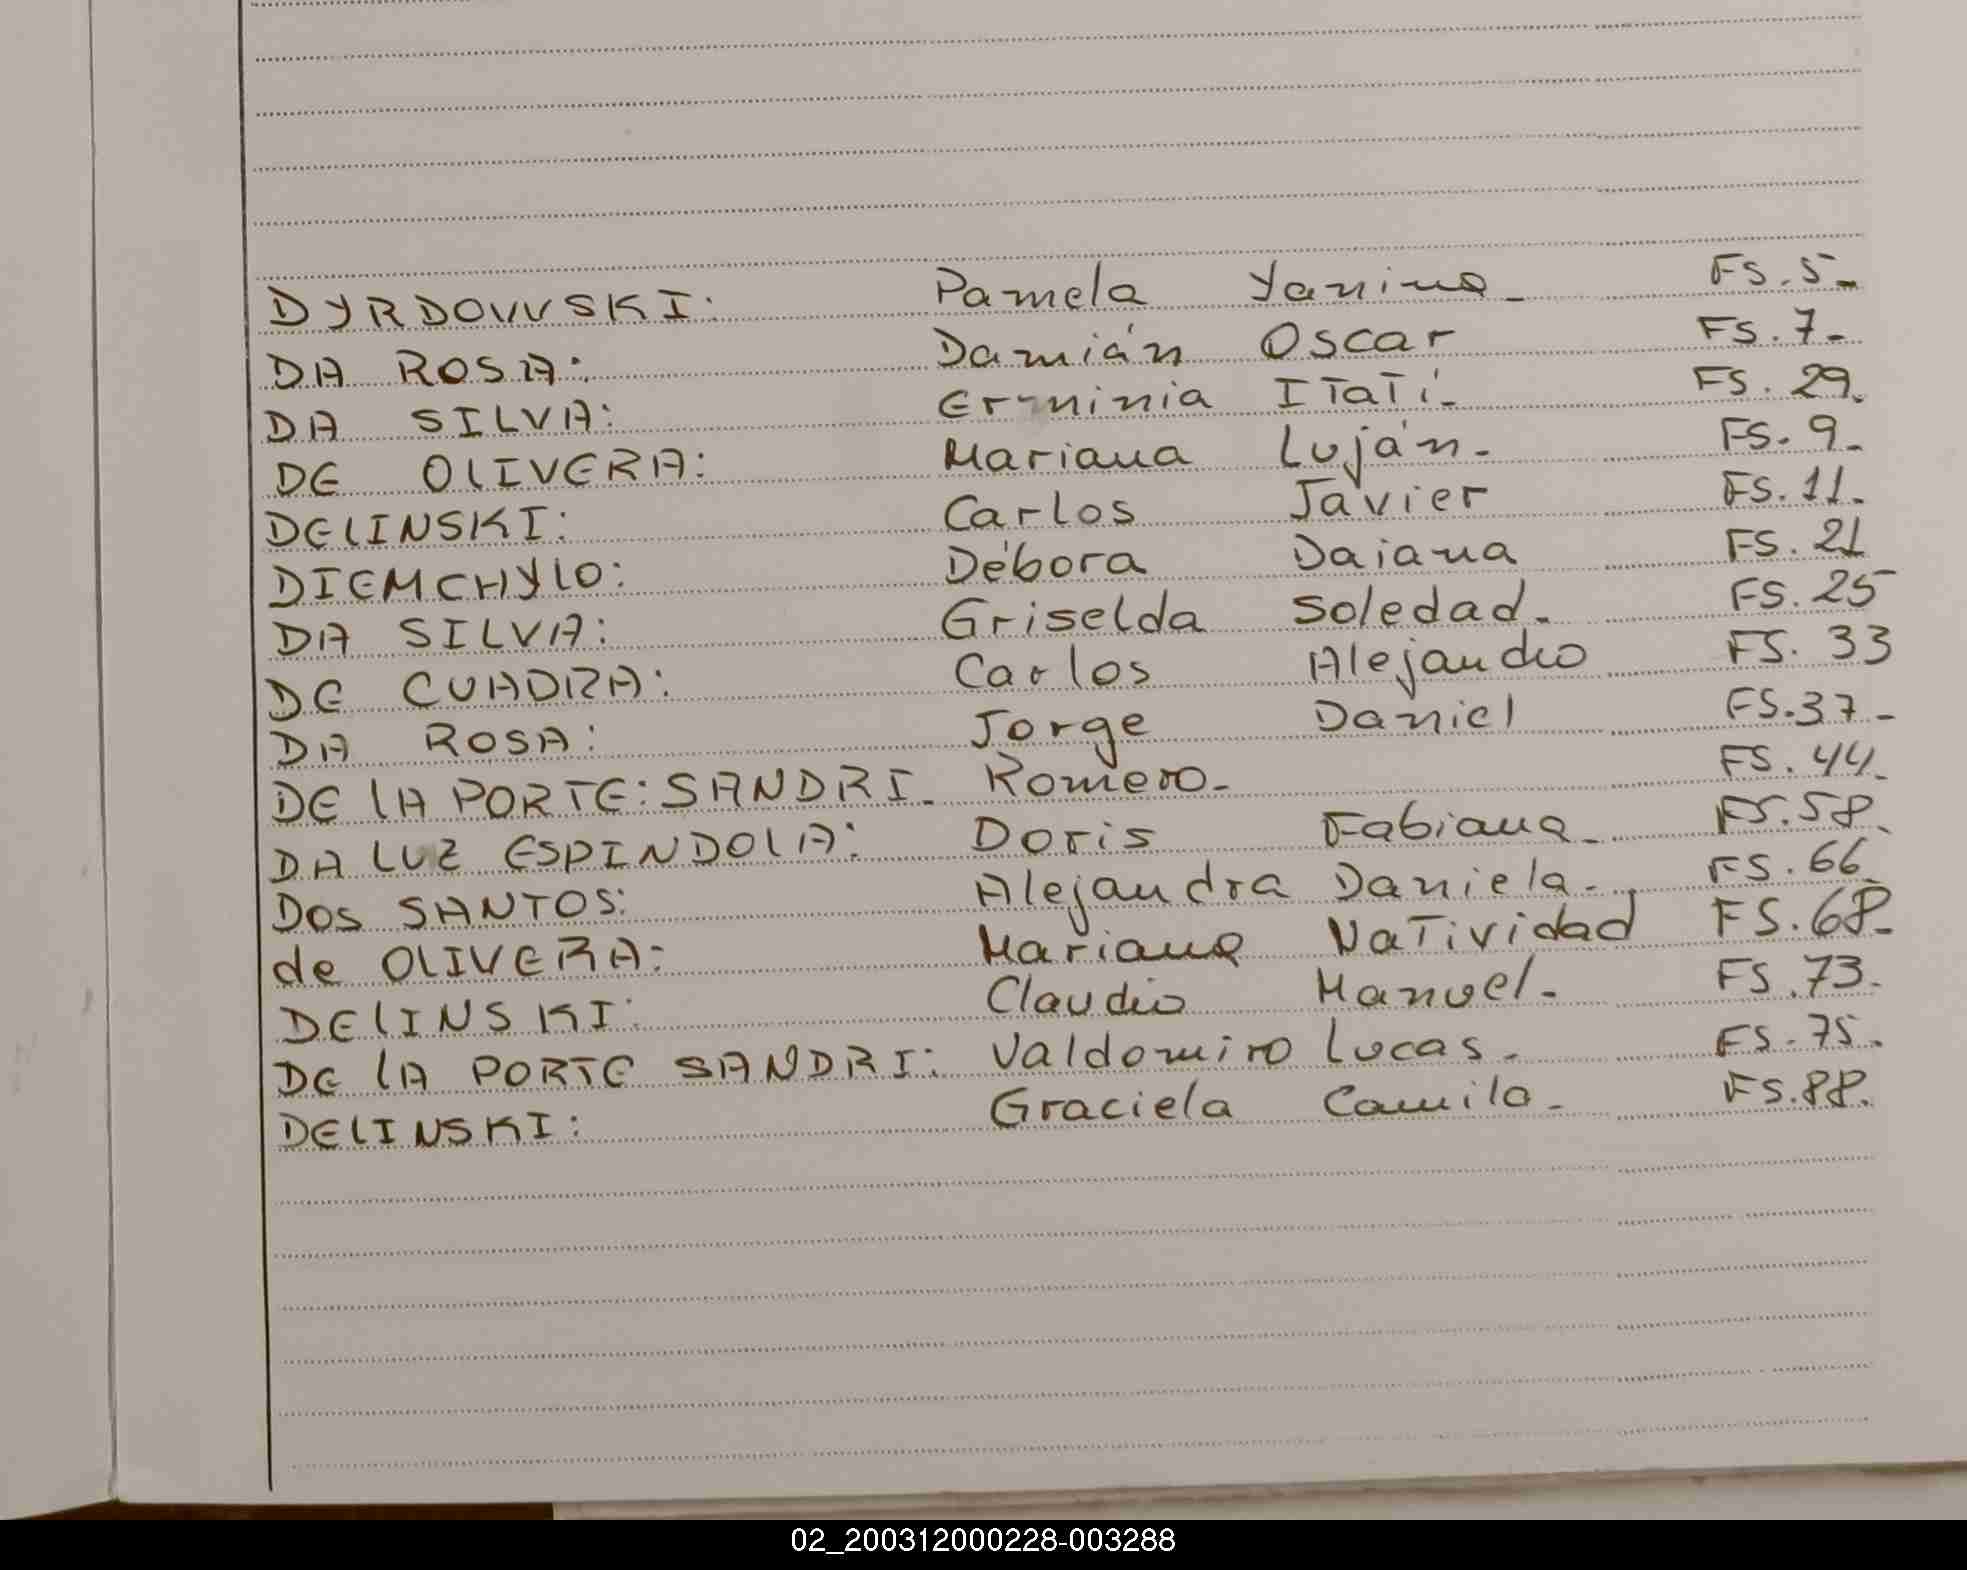 DYRDOWSKI: Pamela Yanina- FS. 5-
DA ROSA: Damián Oscar FS. 7-
DA SILVA: Erminia ITaTí- FS. 29.
DE OLIVERA: Mariana Luján- FS. 9-
DELINSKI: Carlos Javier FS. 11-
DIEMCHYLO: Débora Daiana FS. 21
DA SILVA: Griselda Soledad- FS. 25
DE CUADRA: Carlos Alejandro FS. 33
DA ROSA: Jorge Daniel FS.37-
DE LA PORTE: SANDRI- Romero- FS. 44-
DA LUZ ESPINDOLA: Doris Fabiana- FS.58.
DOS SANTOS: Alejandra Daniela- FS. 66
de OLIVERA: Mariana NaTividad FS.68-
DELINSKI: Claudio Manuel- FS.73-
DE LA PORTE SANDRI: Valdomiro Lucas- FS-75.
DELINSKI: Graciela Camila- FS.88.
02_200312000228-003288